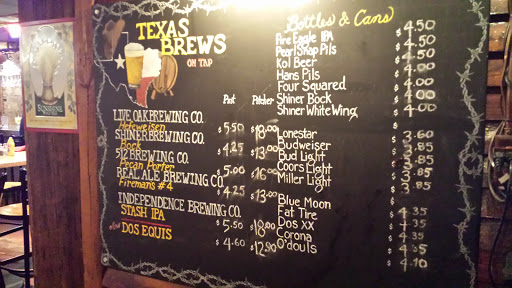 TEXAS
BREWS
ON TAP
Pint Pitcher
LIVE OAK BREWING CO.
Hefeweisen $5.50 $18.00
SHINER BREWING CO.
Bock $4.25 $13.00
512 BREWING CO.
Pecan Porter 5.00 $16.00
REAL ALE BREWING CO.
Firemans #4 $4.25 $13.00
INDEPENDENCE BREWING CO.
STASH IPA $5.50 $18.00
DOS EQUIS $4.60 $12.90
Bottles & Cans
Fire Eagle IPA $4.50
Pearl Snap Pils $4.50
Kol Beer $4.00
Hans Pils $4.00
Four Squared $4.00
Shiner Bock 4.00
Shiner White Wing 4.00
Lonestar 3.60
Budweiser 3.85
Bud Light 3.85
Coors Light 3.85
Miller Light 3.85
Blue Moon 4.35
Fat Tire 4.35
Dos XX 4.35
Corona 4.35
O'douls 4.10
SUNSHINE